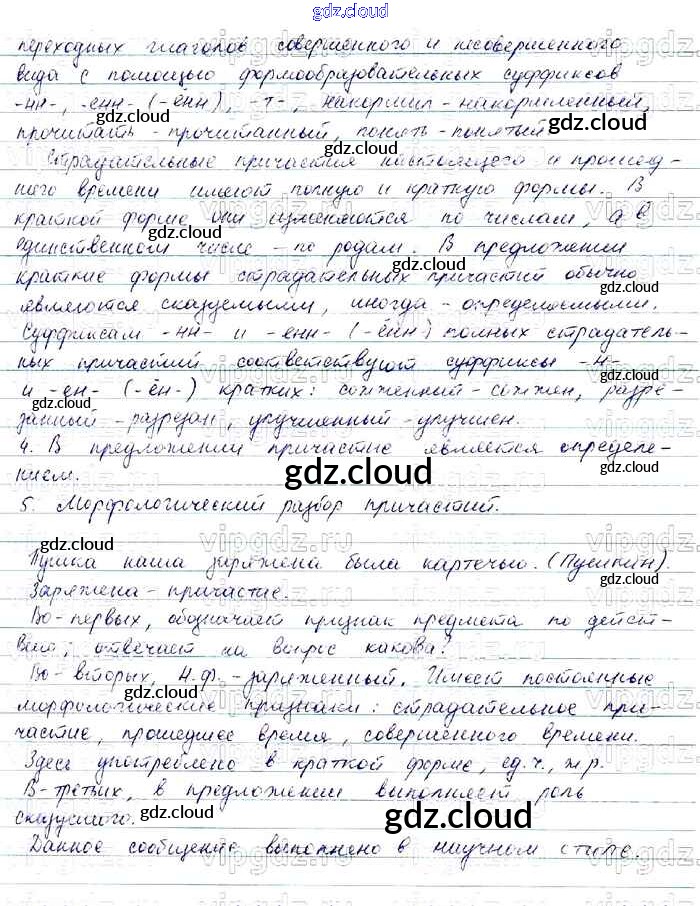 gdz.cloud
переходных глаголов совершенного и несовершенного
вида с помощью формообразовательных суффиксов
-нн-, -енн- (-ённ), -т-, накормил - накормленный,
прочитать - прочитанный, понять - понятый
gdz.cloud
Страдательные причастия настоящего и прошед-
ного времени имеют полную и краткую формы. В
краткой форме они изменяются по числам, а в
gdz.cloud
единственном числе - по родам. В предложении
краткие формы страдательных причастий обычно
gdz.cloud
являются сказуемыми, иногда - определяемыми.
Суффиксам -нн- и -енн- (-ённ) полных страдатель-
ных причастий соответствуют суффиксы -н-
gdz.cloud
и -ен- (-ён-) кратких: сожженный - сожжен, разре-
gdz.cloud
занный - разрезан, улучшенный - улучшен.
4. В предложении причастие является определе-
нием.
gdz.cloud
5. Морфологический разбор причастий.
gdz.cloud
gdz.cloud
Пушка наша заряжена была картечью. (Пушкин).
Заряжена - причастие.
Во-первых, обозначает признак предмета по дейст-
вию; отвечает на вопрос какова?
gdz.cloud
Во-вторых, Н.ф. - заряженный. Имеет постоянные
морфологические признаки: страдательное при-
gdz.cloud
частие, прошедшее время, совершенного времени.
Здесь употреблено в краткой форме, ед.ч., ж.р.
В-третьих, в предложении выполняет роль
сказуемого.
gdz.cloud
gdz.cloud
Данное сообщение выполнено в научном стиле.